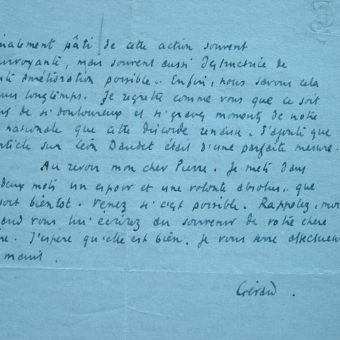 finalement pâti de cette action souvent
urvoyante, mais souvent aussi destructrice de
amélioration possible. Enfin, nous savons cela
longtemps. Je regrette comme vous que ce soit
de si douloureux et si graves moments de notre
nationale que cette discorde renaisse. J'ajoute que
article sur Léon Daudet était d'une parfaite mesure.
Au revoir mon cher Pierre. Je mets dans
deux mots un espoir et une volonté absolus, que
soit bientôt. Venez si c'est possible. Rappelez-moi
quand vous lui écrirez au souvenir de votre chère
J'espère qu'elle est bien. Je vous serre affectueu
mains.
Gérard.